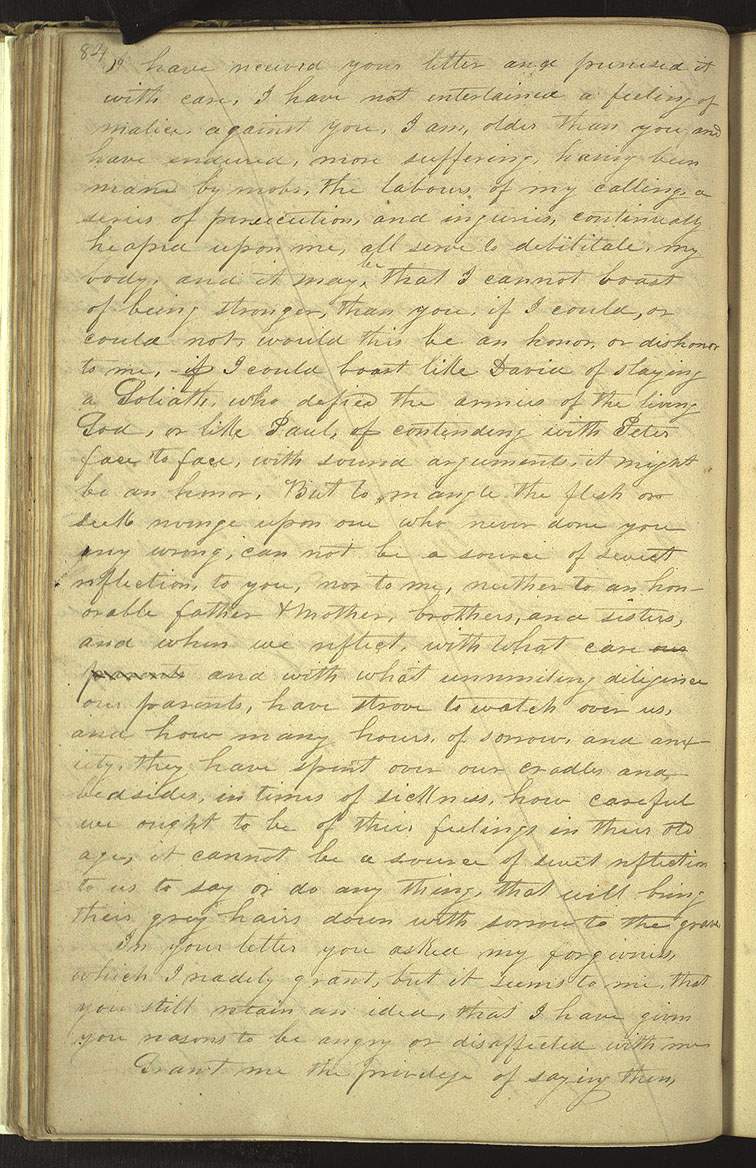 84
I have received your letter and perused it
with care, I have not entertained a feeling of
malice, against you, I am, older than you and
have endured, more suffering, having been
mar'd by mobs, the labours of my calling, a
series of persecution, and injuries, continually
heaped upon me, all serve to debititate, my
body, and it may, be that I cannot boast
of being stronger, than you, if I could, or
could not, would this be an honor, or dishonor
to me, - if I could boast like David of slaying
a Goliath, who defied the armies of the living
God, or like Paul, of contending with Peter
face to face, with sound arguments, it might
be an honor, But to, mangle the flesh or
seek revenge upon one who never done you
any wrong, can not be a source of sweet
reflection, to you, nor to me, neither to an hon-
orable father & mother, brothers, and sisters,
and when we reflect, with what care our
parents and with what unremiting diligence
our parents, have strove to watch over us,
and how many hours, of sorrow, and anx-
iety, they have spent over our cradles and
bedsides, in times of sickness, how careful
we ought to be of their feelings in their old
age, it cannot be a source of sweet reflection
to us to say or do any thing, that will bring
their grey hairs down with sorrow to the grave
In your letter you asked my forgivness,
which I readily grant, but it seems to me, that
you still retain an idea, that I have given
you reasons to be angry or disaffected with me
Grant me the privilege of saying then,